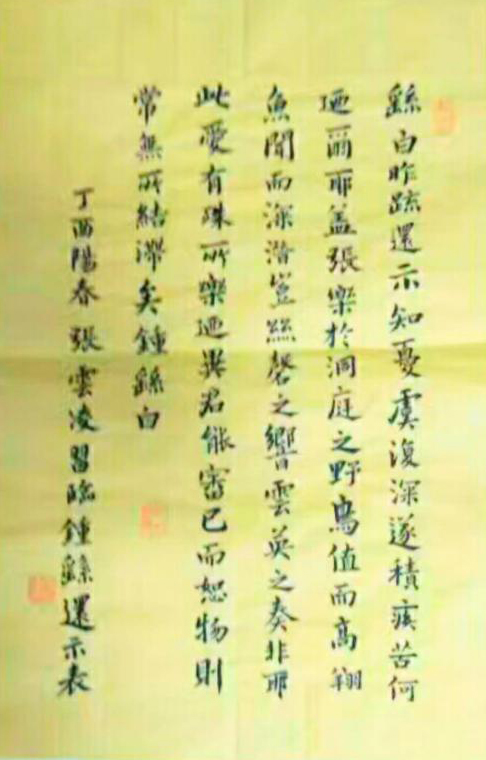 繇白昨疏還示知憂虞復深遂積疾苦何
迺爾耶蓋張樂於洞庭之野鳥值而高翔
魚聞而深潛豈絲磬之響雲英之奏非耶
此愛有殊所樂迺異君能審己而恕物則
常無所結滯矣鍾繇白
丁酉陽春張雲凌習臨鍾繇還示表